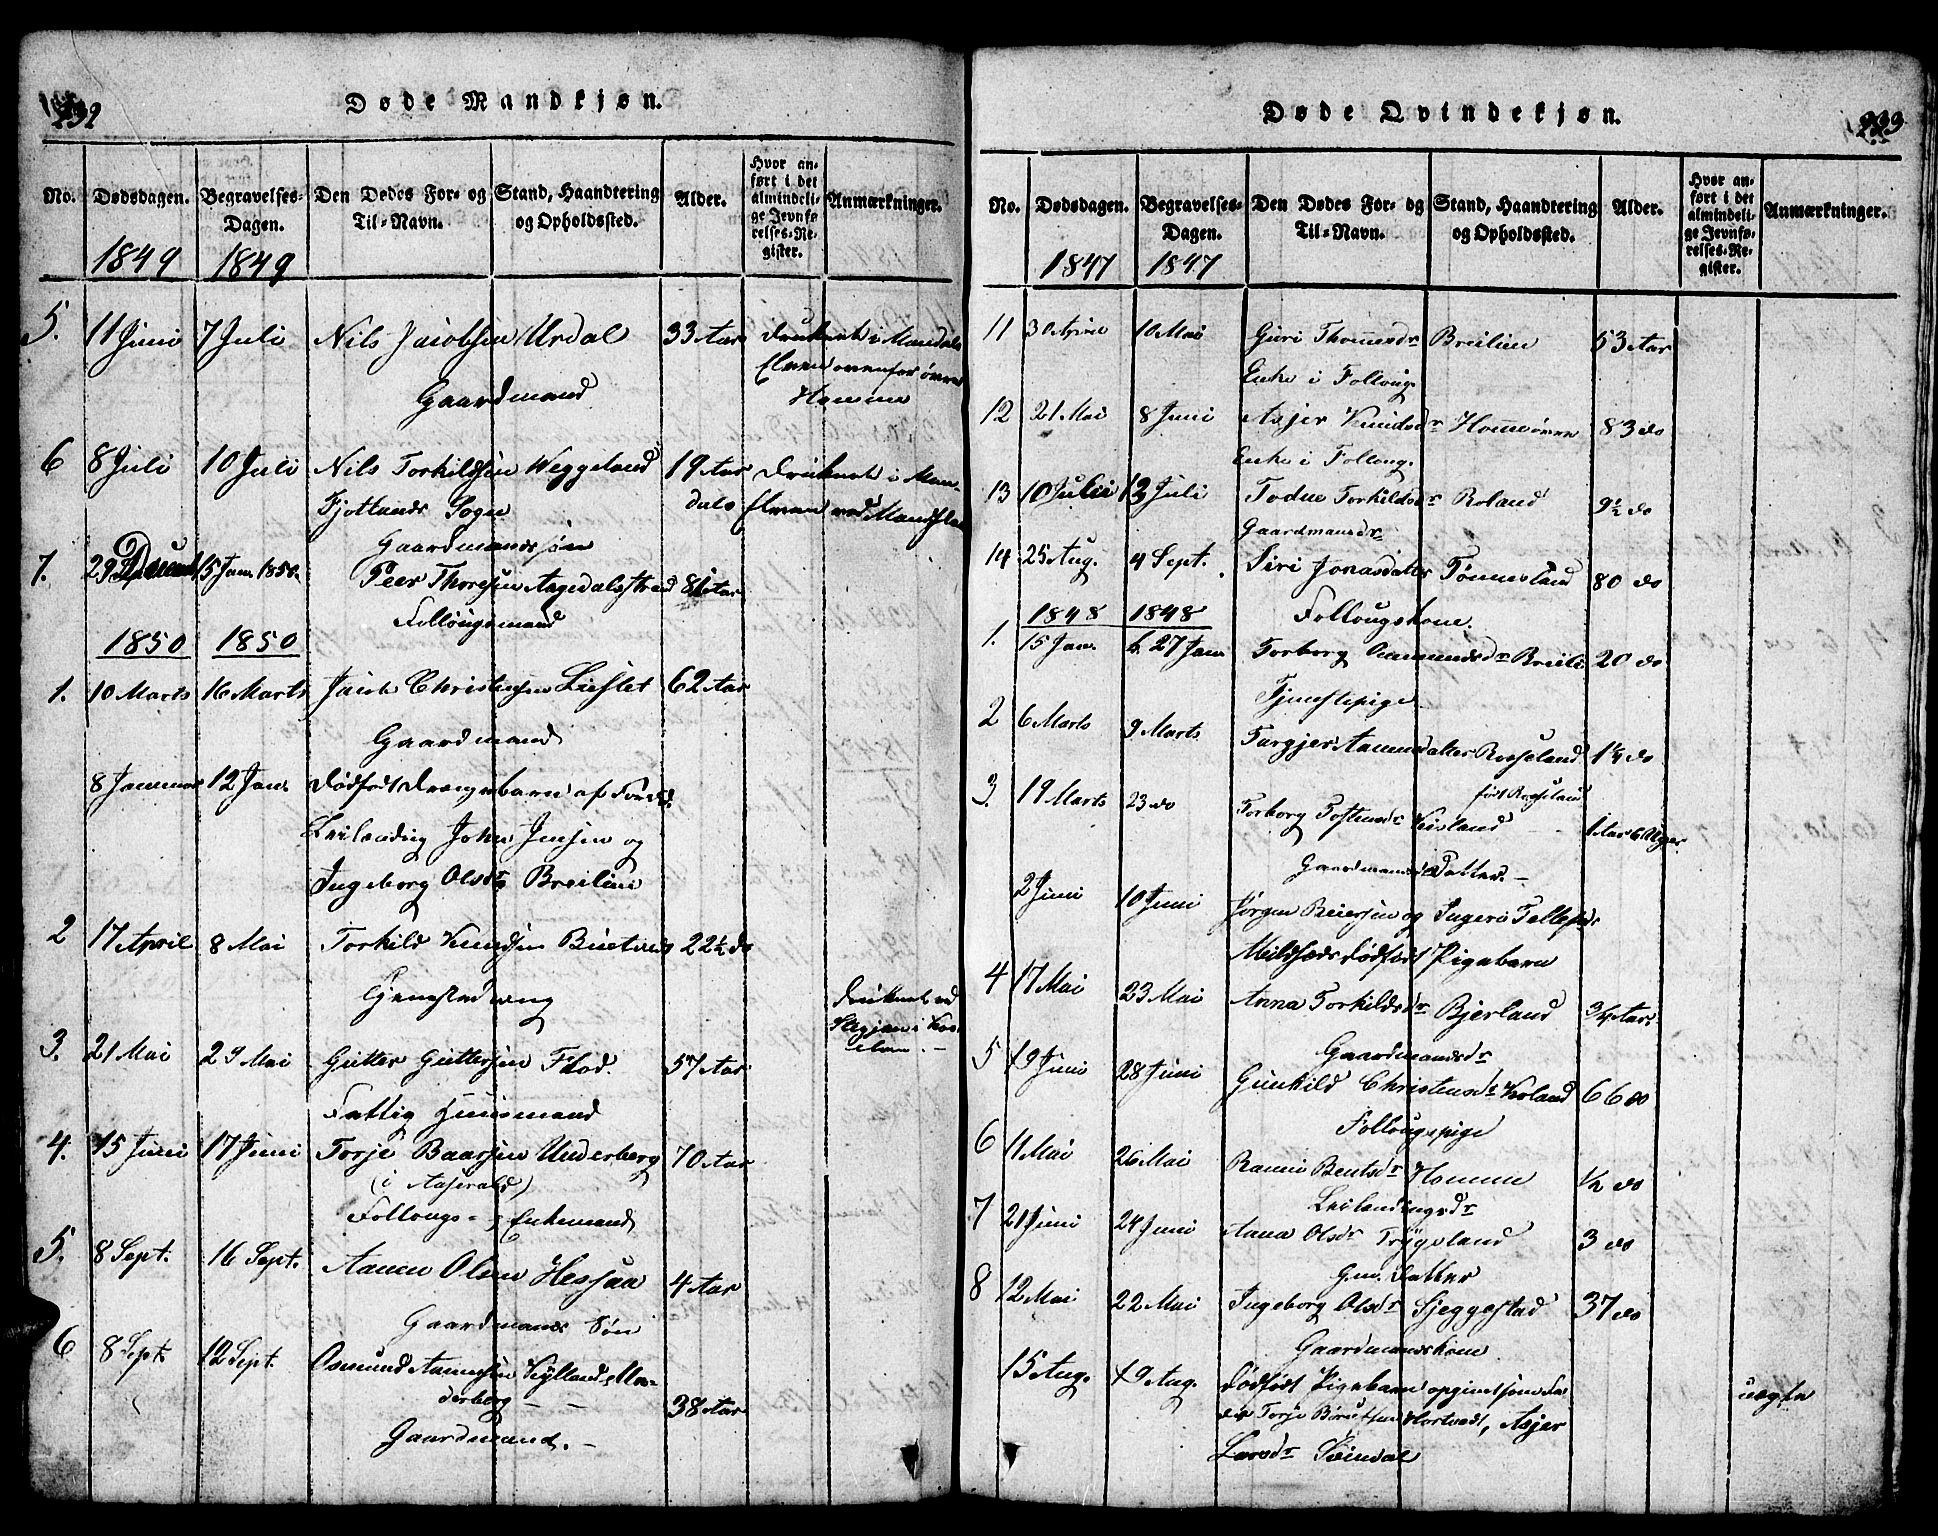 232
Døde Mandkjøn.
No. Dødsdagen. Begravelses-Dagen. Den Dødes For- og Til-Navn. Stand, Haandtering og Opholdssted. Alder. Hvor anført i det almindelige Jevnførelses-Register. Anmærkninger.
1849 1849
5. 11 Juni 7 Juli Nils Jacobsen Urdal 33 Aar Druknet i Mandals
Elven ovenfor øvre
Gaardmand Homme
6 8 Juli 10 Juli Nils Torkildsen Weggeland 19 Aar Druknet i Man-
Fjotlands Sogn dals Elven ved
Gaardmandssøn
7. 29 Decemb 5 Jan. 1850. Peer Thoresen Aagedalsstrand 81 Aar
Follougsmand
1850 1850
1. 10 Marts 16 Marts Jacob Christensen Lieslet 62 Aar
Gaardmand
8 Januar 12 Jan. Dødfødt Drengebarn af
Leilending John Jensen og
Ingeborg Olsdr Breilien
2 17 April 8 Mai Torkild Knudsen 22½ do
Druknet ved
3. 21 Mai 29 Mai Gutter Guttersen Flod. 57 Aar
Fattig Huusmand
4. 15 Juni 17 Juni Torje Baarsen Underberg 70 Aar
(i Aaserald)
Follougs- Enkemand
5. 8 Sept. 16 Sept. Aanen Olsen Hessaa 4 Aar
Gaardmands Søn
6 8 Sept. 12 Sept. Osmund Aanensen Kylland, Un-
derberg 38 Aar
Gaardmand.
233
Døde Qvindekjøn.
No. Dødsdagen. Begravelses-Dagen. Den Dødes For- og Til-Navn. Stand, Haandtering og Opholdssted. Alder. Hvor anført i det almindelige Jevnførelses-Register. Anmærkninger.
1847 1847
11 30 April 10 Mai Guri Thomesdr Breilien 53 Aar
Enke i Folloug.
12 21 Mai 8 Juni Asjer Knudsdr Homme 83 do
Enke i Folloug.
13 10 Julii 12 Juli Todne Torkildsdr Roland 9½ do
Gaardmansdr
14 25 Aug. 4 Sept. Siri Jonasdatter Tønnesland 80 do
1848 1848 Follougskone.
1. 15 Jan. 27 Jan. Torborg Aamundsdr Breili 20 do
Tjenestepige.
2 6 Marts 9 Marts Targjer Aanensdatter Rosseland 1¼ do
født Rosseland
3. 19 Marts 23 do Torborg Tostensdr 1 Aar 6 Uger
Gaardmands Datter.
2 Juni 10 Juni Jørgen Reiersen og Ingeri Tellefsdr
Dødfødt Pigebarn
4 17 Mai 23 Mai Anna Torkildsdr Bjerland 3/4 Aar.
Gaardmandsdr
5 19 Juni 28 Juni Gunhild Christensdr 66 do
Follougspige
6 11 Mai 26 Mai Bentsdr Homme ½ do
Leilendingsdr
7 21 Juni 24 Juni Anna Olsdr Trygsland 3 do
Gm. Datter
8 12 Mai 22 Mai Ingeborg Olsdr Sjeggestad 37 do
Gaardmandskone
15 Aug. 19 Aug. Dødfødt Pigebarn opgivet som Fa-
der Torje Hortvedt, Asjer uægte
Larsdr